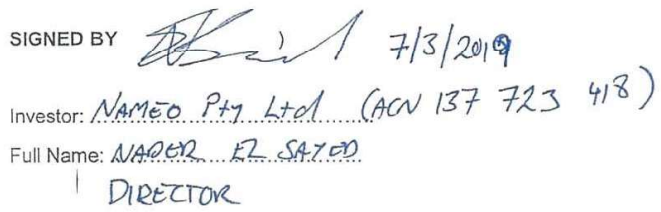 SIGNED BY 7/3/2019
Investor: NAMEO Pty Ltd (ACN 137 723 418)
Full Name: NADER EL SAYED
DIRECTOR